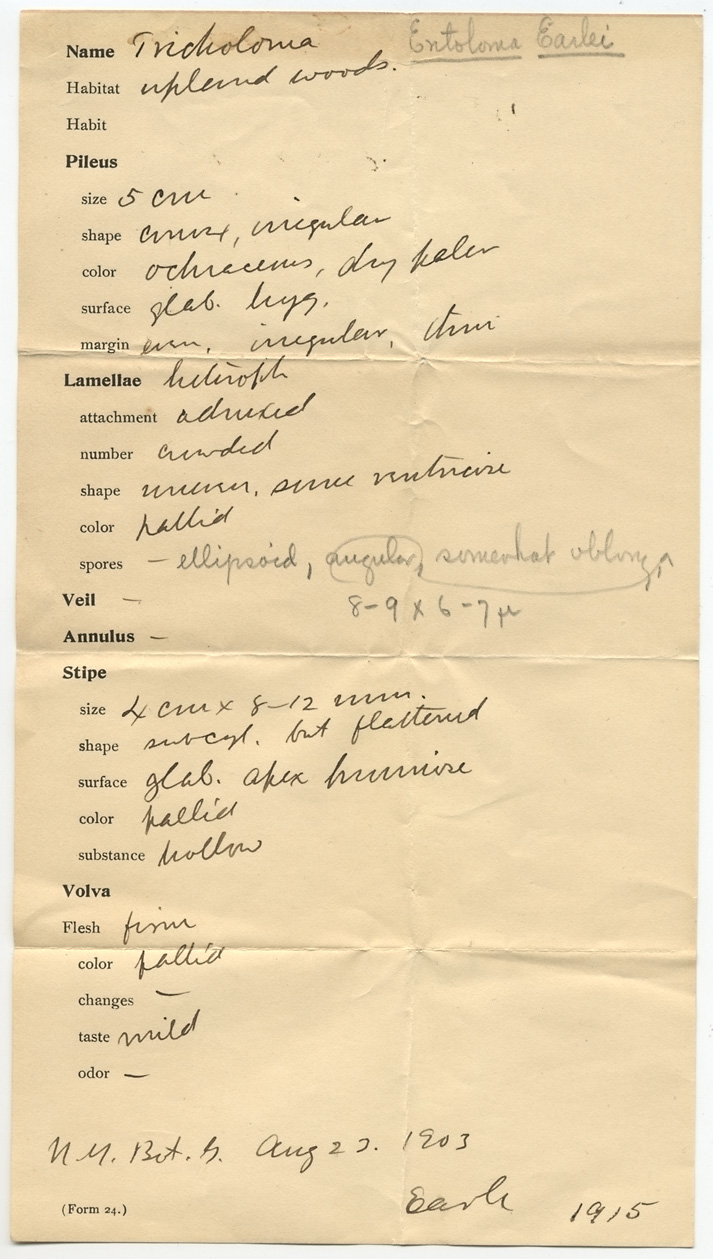 Name Tricholoma Entoloma Earlei
Habitat upland woods.
Habit
Pileus
size 5 cm
shape convex, irregular
color ochraceous, dry paler
surface glab. hyg.
margin even, irregular, thin
Lamellae heteroph
attachment adnexed
number crowded
shape uneven, some ventricose
color pallid
spores – ellipsoid, angular, somewhat oblong,
8-9 x 6-7 µ
Veil –
Annulus –
Stipe
size 4 cm x 8-12 mm.
shape subcyl. but flattened
surface glab. apex
color pallid
substance hollow
Volva
Flesh firm
color pallid
changes –
taste mild
odor –
N.Y. Bot. G. Aug 1903
(Form 24.) Earle 1915